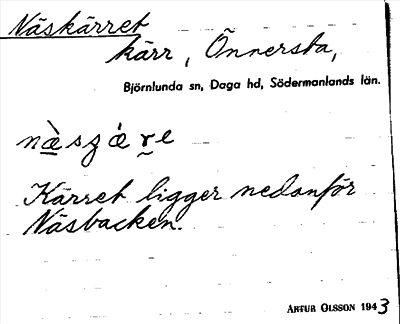 Näskärret
kärr, Önnersta,
Björnlunda sn, Daga hd, Södermanlands län.
Kärret ligger nedanför
Näsbacken.
ARTUR OLSSON 1943